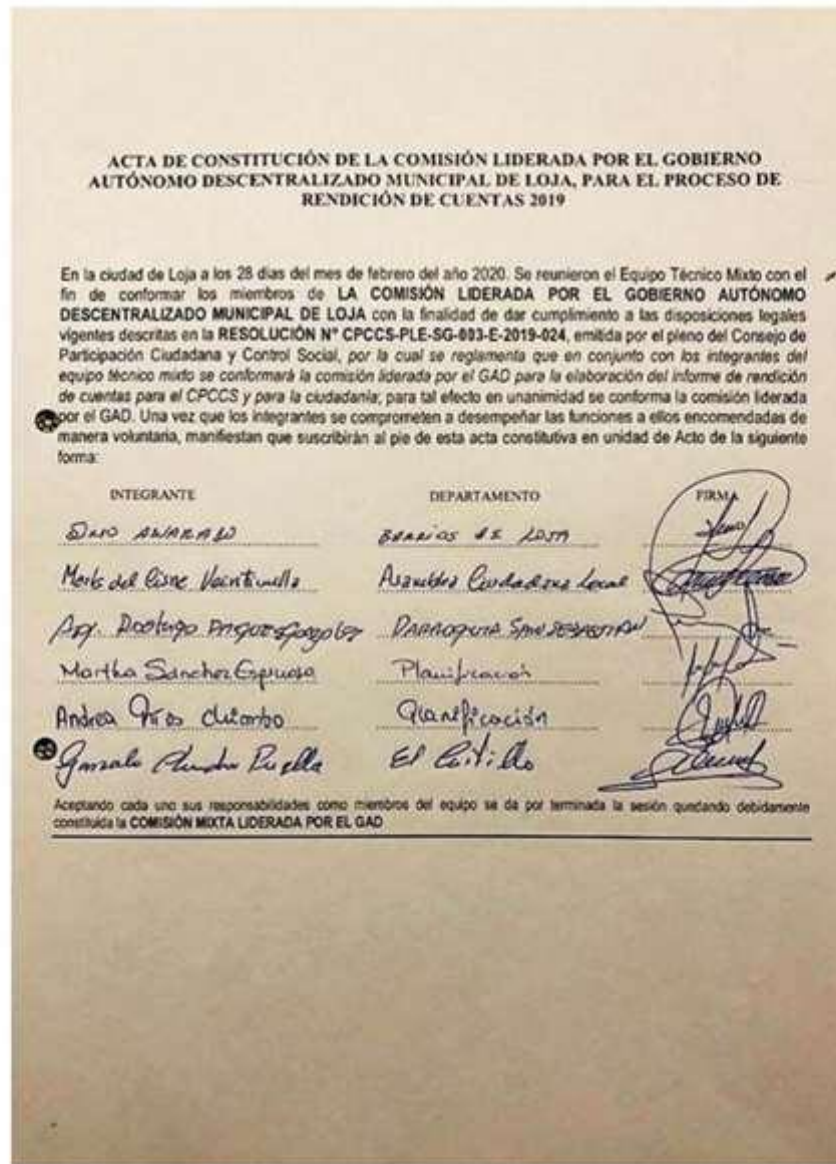 ACTA DE CONSTITUCIÓN DE LA COMISIÓN LIDERADA POR EL GOBIERNO
AUTÓNOMO DESCENTRALIZADO MUNICIPAL DE LOJA, PARA EL PROCESO DE
RENDICIÓN DE CUENTAS 2019
En la ciudad de Loja a los 28 dias del mes de febrero del año 2020. Se reunieron el Equipo Técnico Mixto con el
fin de conformar los miembros de LA COMISIÓN LIDERADA POR EL GOBIERNO AUTÓNOMO
DESCENTRALIZADO MUNICIPAL DE LOJA con la finalidad de dar cumplimiento a las disposiciones legales
vigentes descritas en la RESOLUCIÓN Nº CPCCS-PLE-SG-003-E-2019-024, emitida por el pleno del Consejo de
Participación Ciudadana y Control Social, por la cual se reglamenta que en conjunto con los integrantes del
equipo técnico mixto se conformará la comisión liderada por el GAD para la elaboración del informe de rendición
de cuentas para el CPCCS y para la ciudadanía; para tal efecto en unanimidad se conforma la comisión liderada
por el GAD. Una vez que los integrantes se comprometen a desempeñar las funciones a ellos encomendadas de
manera voluntaria, manifiestan que suscribirán al pie de esta acta constitutiva en unidad de Acto de la siguiente
forma:
INTEGRANTE DEPARTAMENTO FIRMA
BARRIOS DE LOJA
del Cisne Asamblea Ciudadana Local
PARROQUIA SAN SEBASTIAN
Martha Sánchez Espinosa Planificación
Andrea Chiombo Planificación
Gonzalo El
Aceptando cada uno sus responsabilidades como miembros del equipo se da por terminada la sesión quedando debidamente
constituida la COMISIÓN MIXTA LIDERADA POR EL GAD